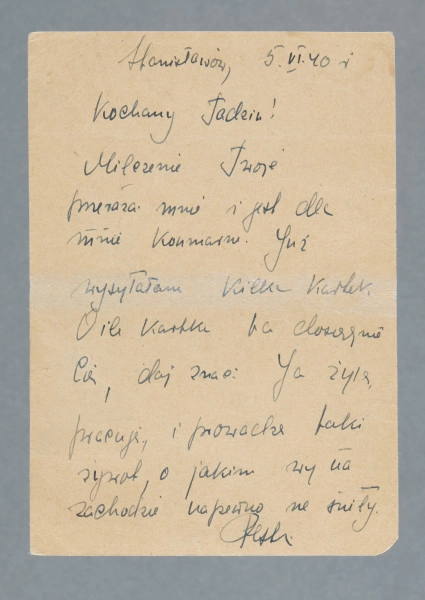 Stanisławów, 5.VI.40 r
Kochany Tadziu!
Milczenie Twoje
przeraża mnie i jest dla
mnie koszmarem. Już
wysyłałam kilka kartek.
O ile kartka ta dosięgnie
Cię, daj znać. Ja żyję,
pracuję, i prowadzę taki
żywot, o jakim wy na
zachodzie napewno nie śniły.